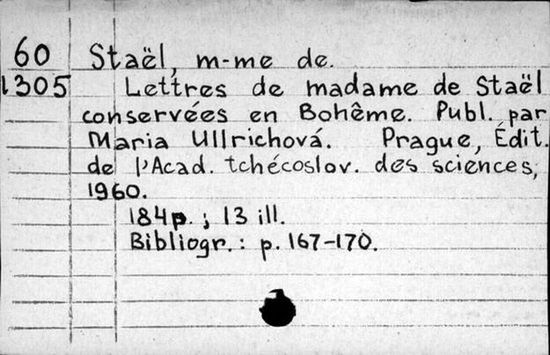 60 Staël, m-me de.
1305 Lettres de madame de Staël
conservées en Bohême. Publ. par
Maria Ullrichová. Prague, Édit.
de l'Acad. tchécoslov. des sciences,
1960.
184p. ; 13 ill.
Bibliogr.: p. 167-170.